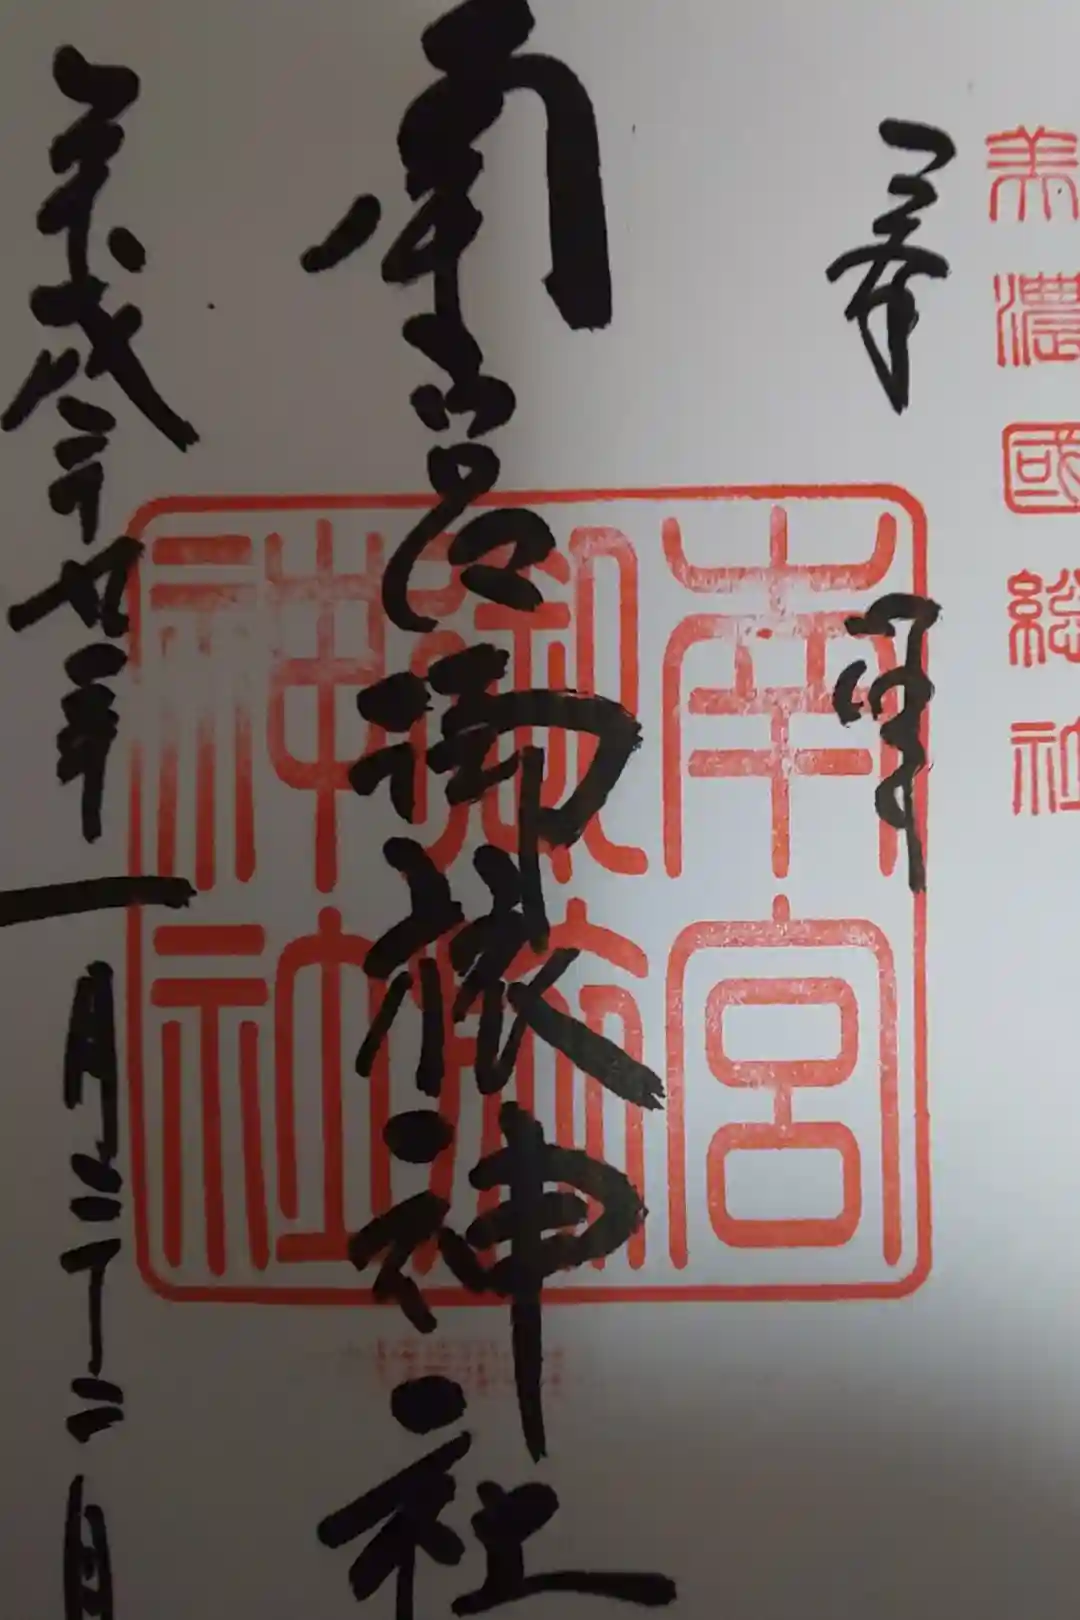 美濃國総社
奉拝
南宮御旅神社
南宮
御旅
神社
平成二十九年
一月二十二日